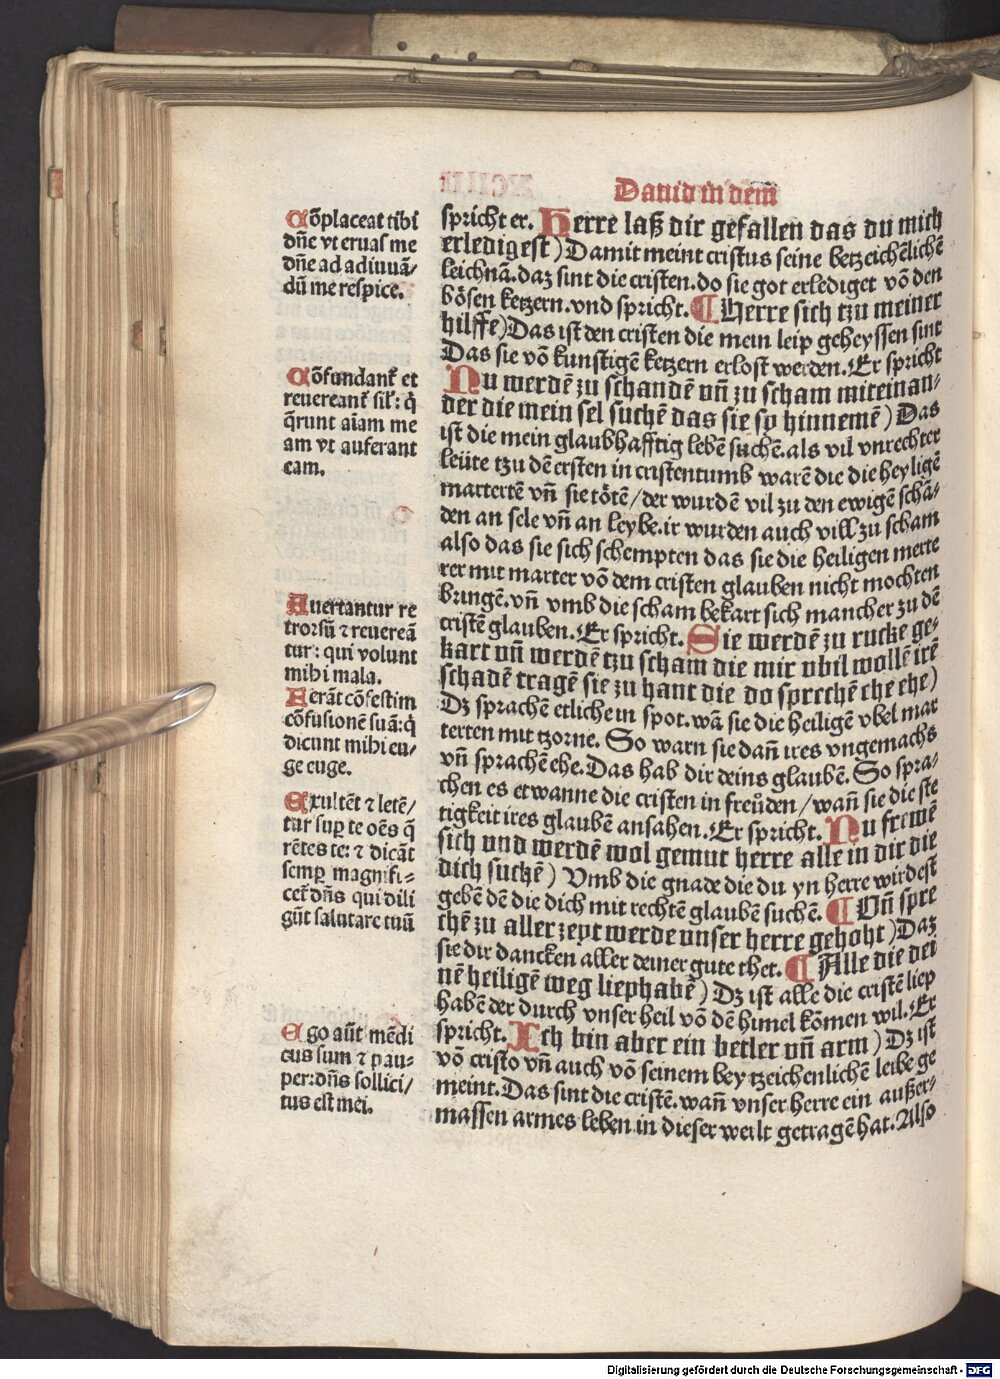 Dauid in dem
Cōplaceat tibi
dn̄e vt eruas me
dn̄e ad adiuuā/
dū me respice.
Cōfundant̄ et
reuereant̄ sil̄: q̄
q̄runt aīam me
am vt auferant
eam.
Auertantur re
trorsū ⁊ reuereā
tur: qui volunt
mihi mala.
Ferāt cōfestim
cōfusionē suā: q̄
dicunt mihi eu/
ge euge.
Exultēt ⁊ letē/
tur sup̱ te oēs q̄
rētes te: ⁊ dicāt
semp̱ magnifi-
cet̄ dn̄s qui dili
gūt salutare tuū
Ego aūt mēdi
cus sum ⁊ pau-
per: dn̄s sollici/
tus est mei.
spricht er. Herre laß dir gefallen das du mich
erledigest) Damit meint cristus seine betzeichēlichē
leichnā. daz sint die cristen. do sie got erlediget vō den
bösen ketzern. vnd spricht. ¶ Herre sich tzu meiner
hilffe) Das ist den cristen die mein leip geheyssen sint
Das sie vō kunftigē ketzern erlost werden. Er spricht
Nu werdē zu schandē vn̄ zu scham miteinan/
der die mein sel suchē das sie so hinnemē) Das
ist die mein glaubhafftig lebē suchē. als vil vnrechter
leüte tzu dē ersten in cristentumb warē die die heyligē
martertē vn̄ sie tötē / der wurdē vil zu den ewigē schā/
den an sele vn̄ an leybe. ir wurden auch vill zu scham
also das sie sich schempten das sie die heiligen merte
rer mit marter vō dem cristen glauben nicht mochten
bringē. vn̄ vmb die scham bekart sich mancher zu dē
cristē glauben. Er spricht. Sie werdē zu rucke ge-
kart vn̄ werdē tzu scham die mir vbil wollē irē
schadē tragē sie zu hant die do sprechē ehe ehe)
Dz sprachē etliche in spot. wā sie die heiligē vbel mar
terten mit tzorne. So warn sie dan̄ ires vngemachs
vn̄ sprachē ehe. Das hab dir deins glaubē. So spra/
chen es etwanne die cristen in freüden / wan̄ sie die ste
tigkeit ires glaubē ansahen. Er spricht. Nu frewē
sich vnd werdē wol gemut herre alle in dir die
dich suchē) Vmb die gnade die du yn herre wirdest
gebē dē die dich mit rechtē glaubē suchē. ¶ Vn̄ spre
chē zu aller zeyt werde vnser herre gehoht) Daz
sie dir dancken aller deiner gute thet. ¶ Alle die dei
nē heiligē weg liephabē) Dz ist alle die cristē liep
habē der durch vnser heil vō dē himel kōmen wil. Er
spricht. Ich bin aber ein betler vn̄ arm) Dz ist
vō cristo vn̄ auch vō seinem bey tzeichenlichē leibe ge
meint. Das sint die cristē. wan̄ vnser herre ein außer-
massen armes leben in dieser werlt getragē hat. Also
Digitalisierung gefördert durch die Deutsche Forschungsgemeinschaft - DFG